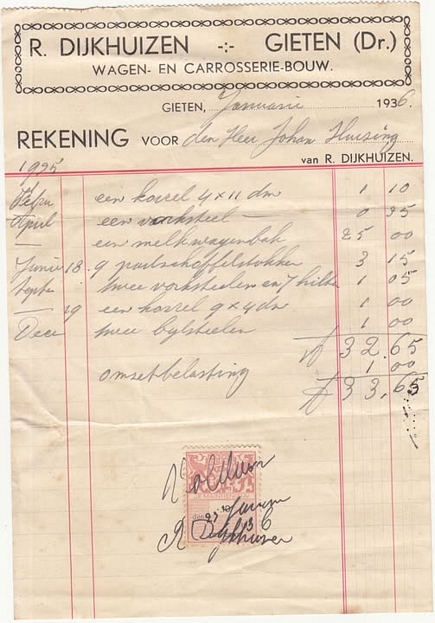 R. DIJKHUIZEN -:- GIETEN (Dr.)
WAGEN- EN CARROSSERIE-BOUW.
GIETEN, Januarie 1936.
REKENING VOOR den Heer Johan Huising
van R. DIJKHUIZEN.
1935
Febru een korrel 4 x 11 dm 1 10
April een vorksteel — 0 35
— een melkwagenbak 25 00
Junie 18. 9 3 15
Septe twee vorksteelen en 7 1 05
— 19 een korrel 9 x 4 dm 1 00
Dece twee bylsteelen 1 00
ƒ 32.65
omzetbelasting 1 00
ƒ 33.65
Voldaan
23 Januari
1936
R Dijkhuizen